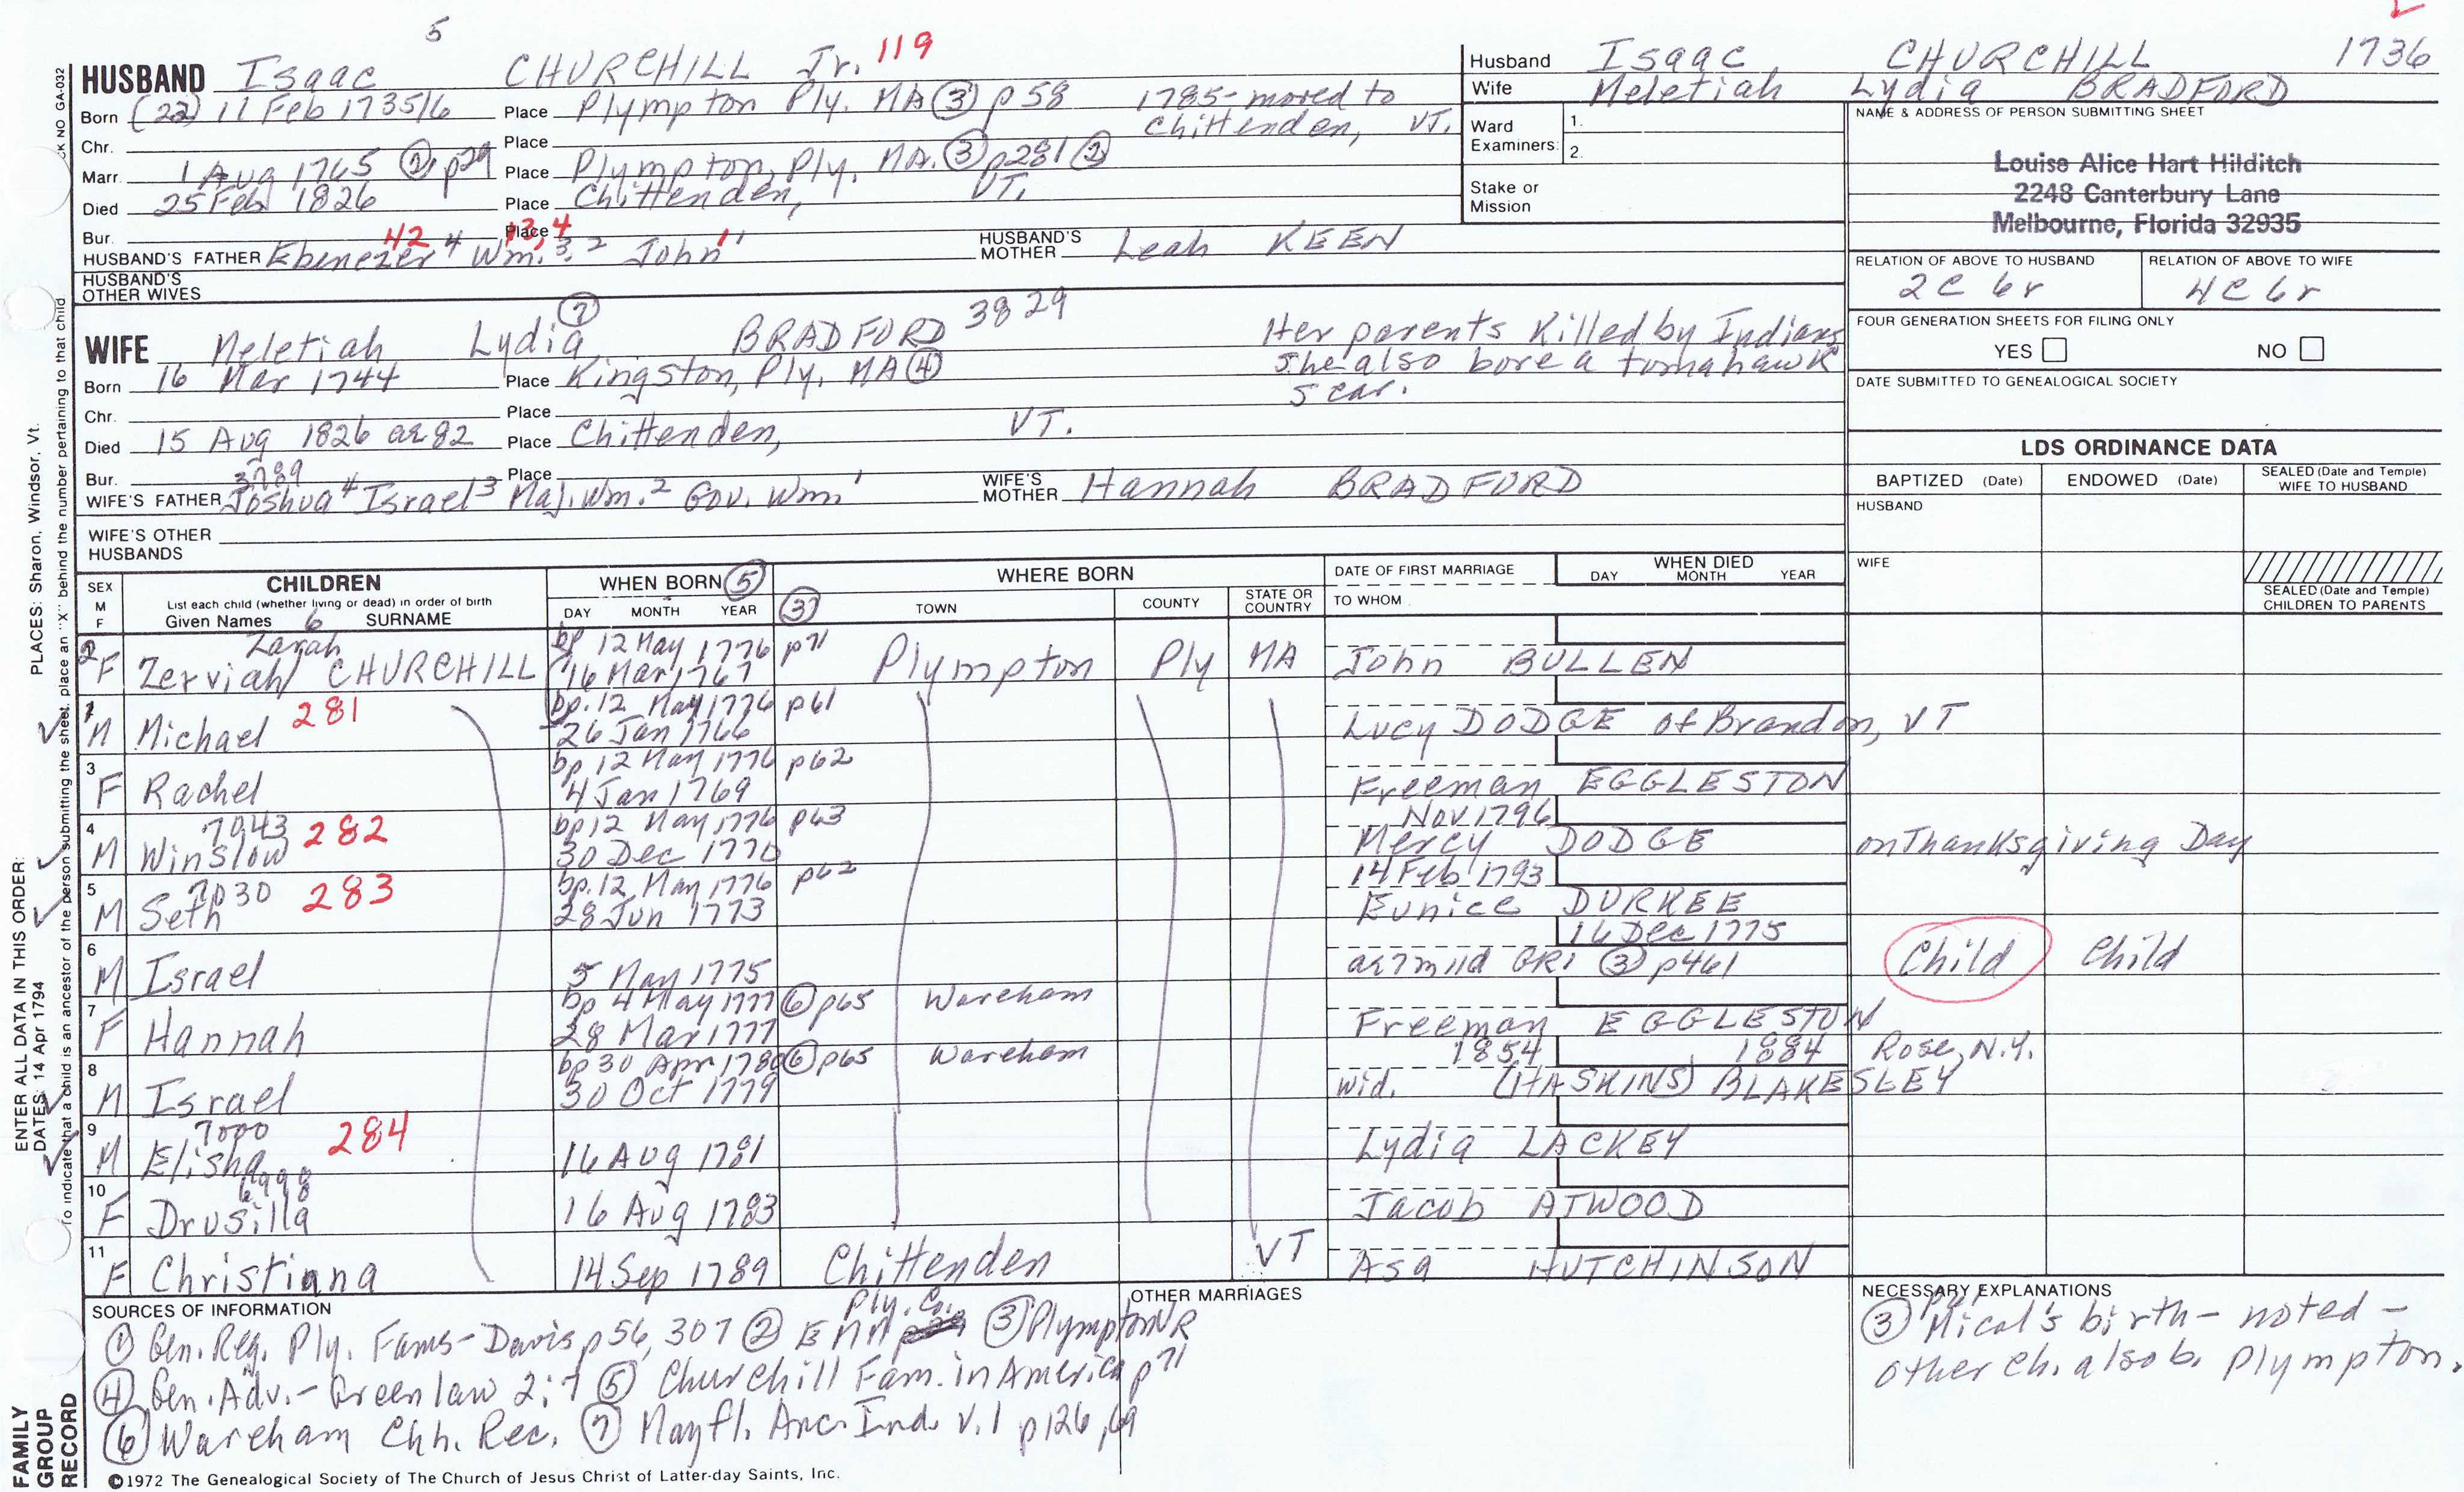 5
HUSBAND Isaac CHURCHILL Jr. 119
Born (22) 11 Feb 1735/6 Place Plympton Ply. MA (3) p58 1785- moved to Chittenden, VT.
Chr. Place
Marr. 1 Aug 1765 (2) p29 Place Plympton, Ply, MA. (3) p281 (2)
Died 25 Feb 1826 Place Chittenden, VT.
Bur. Place
HUSBAND'S FATHER Ebenezer 4 42 Wm. 3. 2 13, 4 John 1 HUSBAND'S MOTHER Leah KEEN
HUSBAND'S OTHER WIVES
WIFE Meletiah Lydia (7) BRADFORD 3829
Her parents killed by Indians
She also bore a tomahawk
scar.
Born 16 Mar 1744 Place Kingston, Ply, MA (4)
Chr. Place
Died 15 Aug 1826 ae 82 Place Chittenden, VT.
Bur. Place
3789
WIFE'S FATHER Joshua 4 Israel 3 Maj. Wm. 2 Gov. Wm. 1 WIFE'S MOTHER Hannah BRADFORD
WIFE'S OTHER HUSBANDS
Husband Isaac CHURCHILL 1736
Wife Meletiah Lydia BRADFORD
Ward Examiners: 1.
2.
Stake or Mission
NAME & ADDRESS OF PERSON SUBMITTING SHEET
Louise Alice Hart Hilditch
2248 Canterbury Lane
Melbourne, Florida 32935
RELATION OF ABOVE TO HUSBAND RELATION OF ABOVE TO WIFE
2C 6r 4C 6r
FOUR GENERATION SHEETS FOR FILING ONLY
YES NO
DATE SUBMITTED TO GENEALOGICAL SOCIETY
LDS ORDINANCE DATA
BAPTIZED (Date) ENDOWED (Date) SEALED (Date and Temple) WIFE TO HUSBAND
HUSBAND
WIFE
SEALED (Date and Temple) CHILDREN TO PARENTS
SEX M F
CHILDREN
List each child (whether living or dead) in order of birth
Given Names 6 SURNAME
WHEN BORN (5)
DAY MONTH YEAR (3)
WHERE BORN
TOWN COUNTY STATE OR COUNTRY
DATE OF FIRST MARRIAGE
TO WHOM
WHEN DIED
DAY MONTH YEAR
Zarah bp 12 May 1776 p71
2 F Zerviah CHURCHILL 16 Mar 1767 Plympton Ply MA John BULLEN
bp. 12 May 1776 p61
1 M Michael 281 26 Jan 1766 Lucy DODGE of Brandon, VT
bp 12 May 1776 p62
3 F Rachel 4 Jan 1769 Freeman EGGLESTON
7043 bp 12 May 1776 p63 Nov 1796
4 M Winslow 282 30 Dec 1770 Mercy DODGE on Thanksgiving Day
7030 bp. 12 May 1776 p62 14 Feb 1793
5 M Seth 283 28 Jun 1773 Eunice DURKEE
16 Dec 1775
6 M Israel 5 May 1775 ae 7m 11d GR1 (3) p461 Child Child
bp 4 May 1777 (6) p65 Wareham
7 F Hannah 28 Mar 1777 Freeman EGGLESTON
bp 30 Apr 1780 (6) p65 Wareham 1854 1884 Rose, N.Y.
8 M Israel 30 Oct 1779 wid. (HASKINS) BLAKESLEY
7000
9 M Elisha 284 16 Aug 1781 Lydia LACKEY
6998
10 F Drusilla 16 Aug 1783 Jacob ATWOOD
11 F Christiana 14 Sep 1789 Chittenden VT Asa HUTCHINSON
SOURCES OF INFORMATION
(1) Gen. Reg. Ply. Fams- Davis p56, 307 (2) Ply. Co. EMM (3) Plympton VR
(4) Gen. Adv.- Greenlaw 2:7 (5) Churchill Fam. in America p71
(6) Wareham Chh. Rec. (7) Mayfl. Anc. Ind. v.1 p126, 69
OTHER MARRIAGES
NECESSARY EXPLANATIONS
(3) Mical's birth- noted-
other ch. also b. Plympton.
©1972 The Genealogical Society of The Church of Jesus Christ of Latter-day Saints, Inc.
FAMILY GROUP RECORD
ENTER ALL DATA IN THIS ORDER:
DATES: 14 Apr 1794 PLACES: Sharon, Windsor, Vt.
To indicate that a child is an ancestor of the person submitting the sheet, place an "X" behind the number pertaining to that child
CK NO GA-032